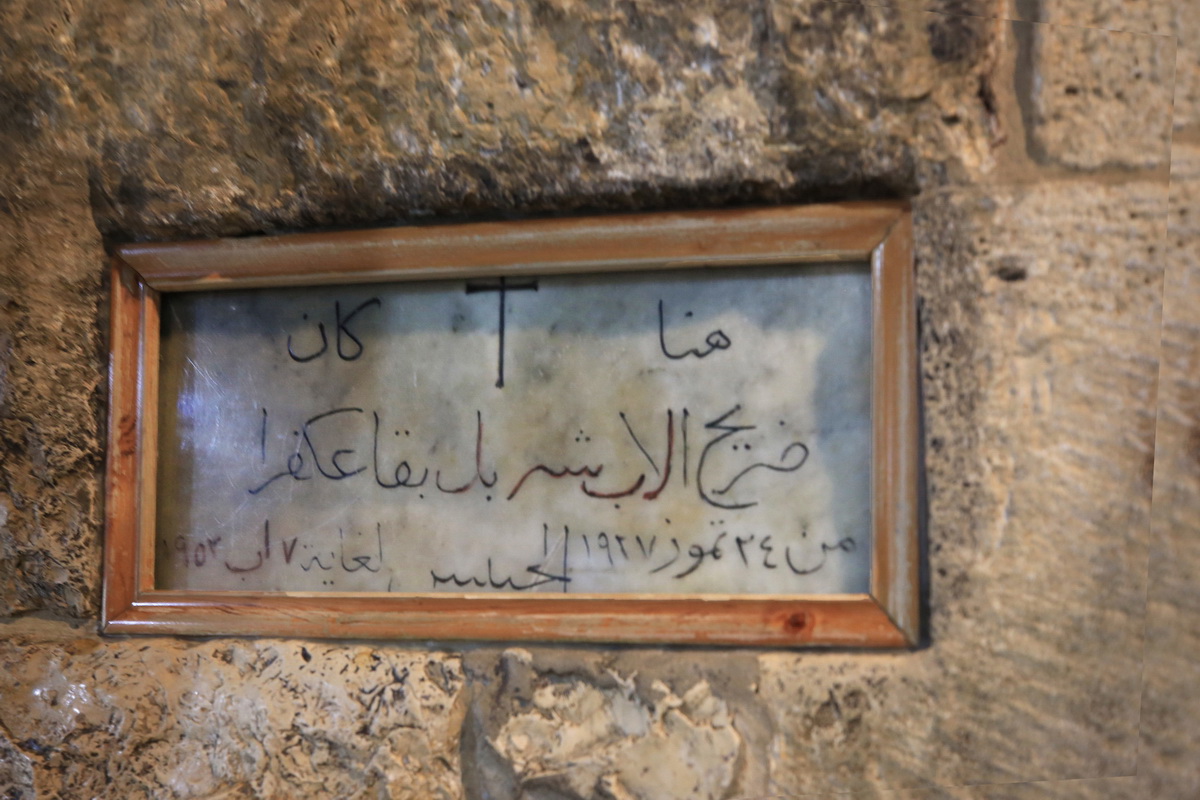 هنا كان
ضريح الاب شربل بقاعكفرا
من ٢٤ تموز ١٩٢٧ لغاية ٧ اب ١٩٥٢
الحبيس